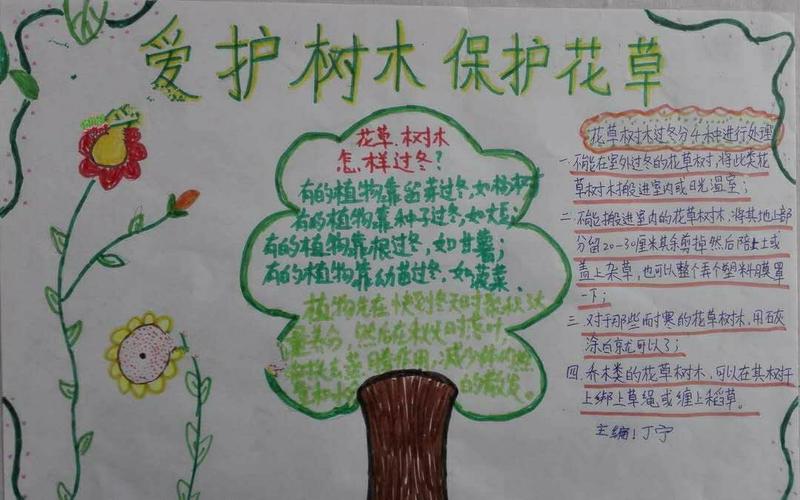 爱护树木 保护花草
花草.树木
怎样过冬?
有的植物靠留芽过冬,如杨树
有的植物靠种子过冬,如大豆;
有的植物靠根过冬,如甘薯;
有的植物靠幼苗过冬,如菠菜.
植物先在快到冬天时聚积
量养分,然后在秋天时落叶,
作用,减少
的散发。
花草树木过冬分4种进行处理
一.不能在室外过冬的花草树,将此类花
草树木搬进室内或日光温室;
二.不能搬进室内的花草树木,将其地上部
分留20-30厘米其余剪掉然后陪上土或
盖上杂草,也可以整个弄个塑料膜罩
一下;
三.对于那些耐寒的花草树木,用石灰
涂白就可以了;
四.乔木类的花草树木,可以在其树干
上绑上草绳或缠上稻草。
主编:丁宁